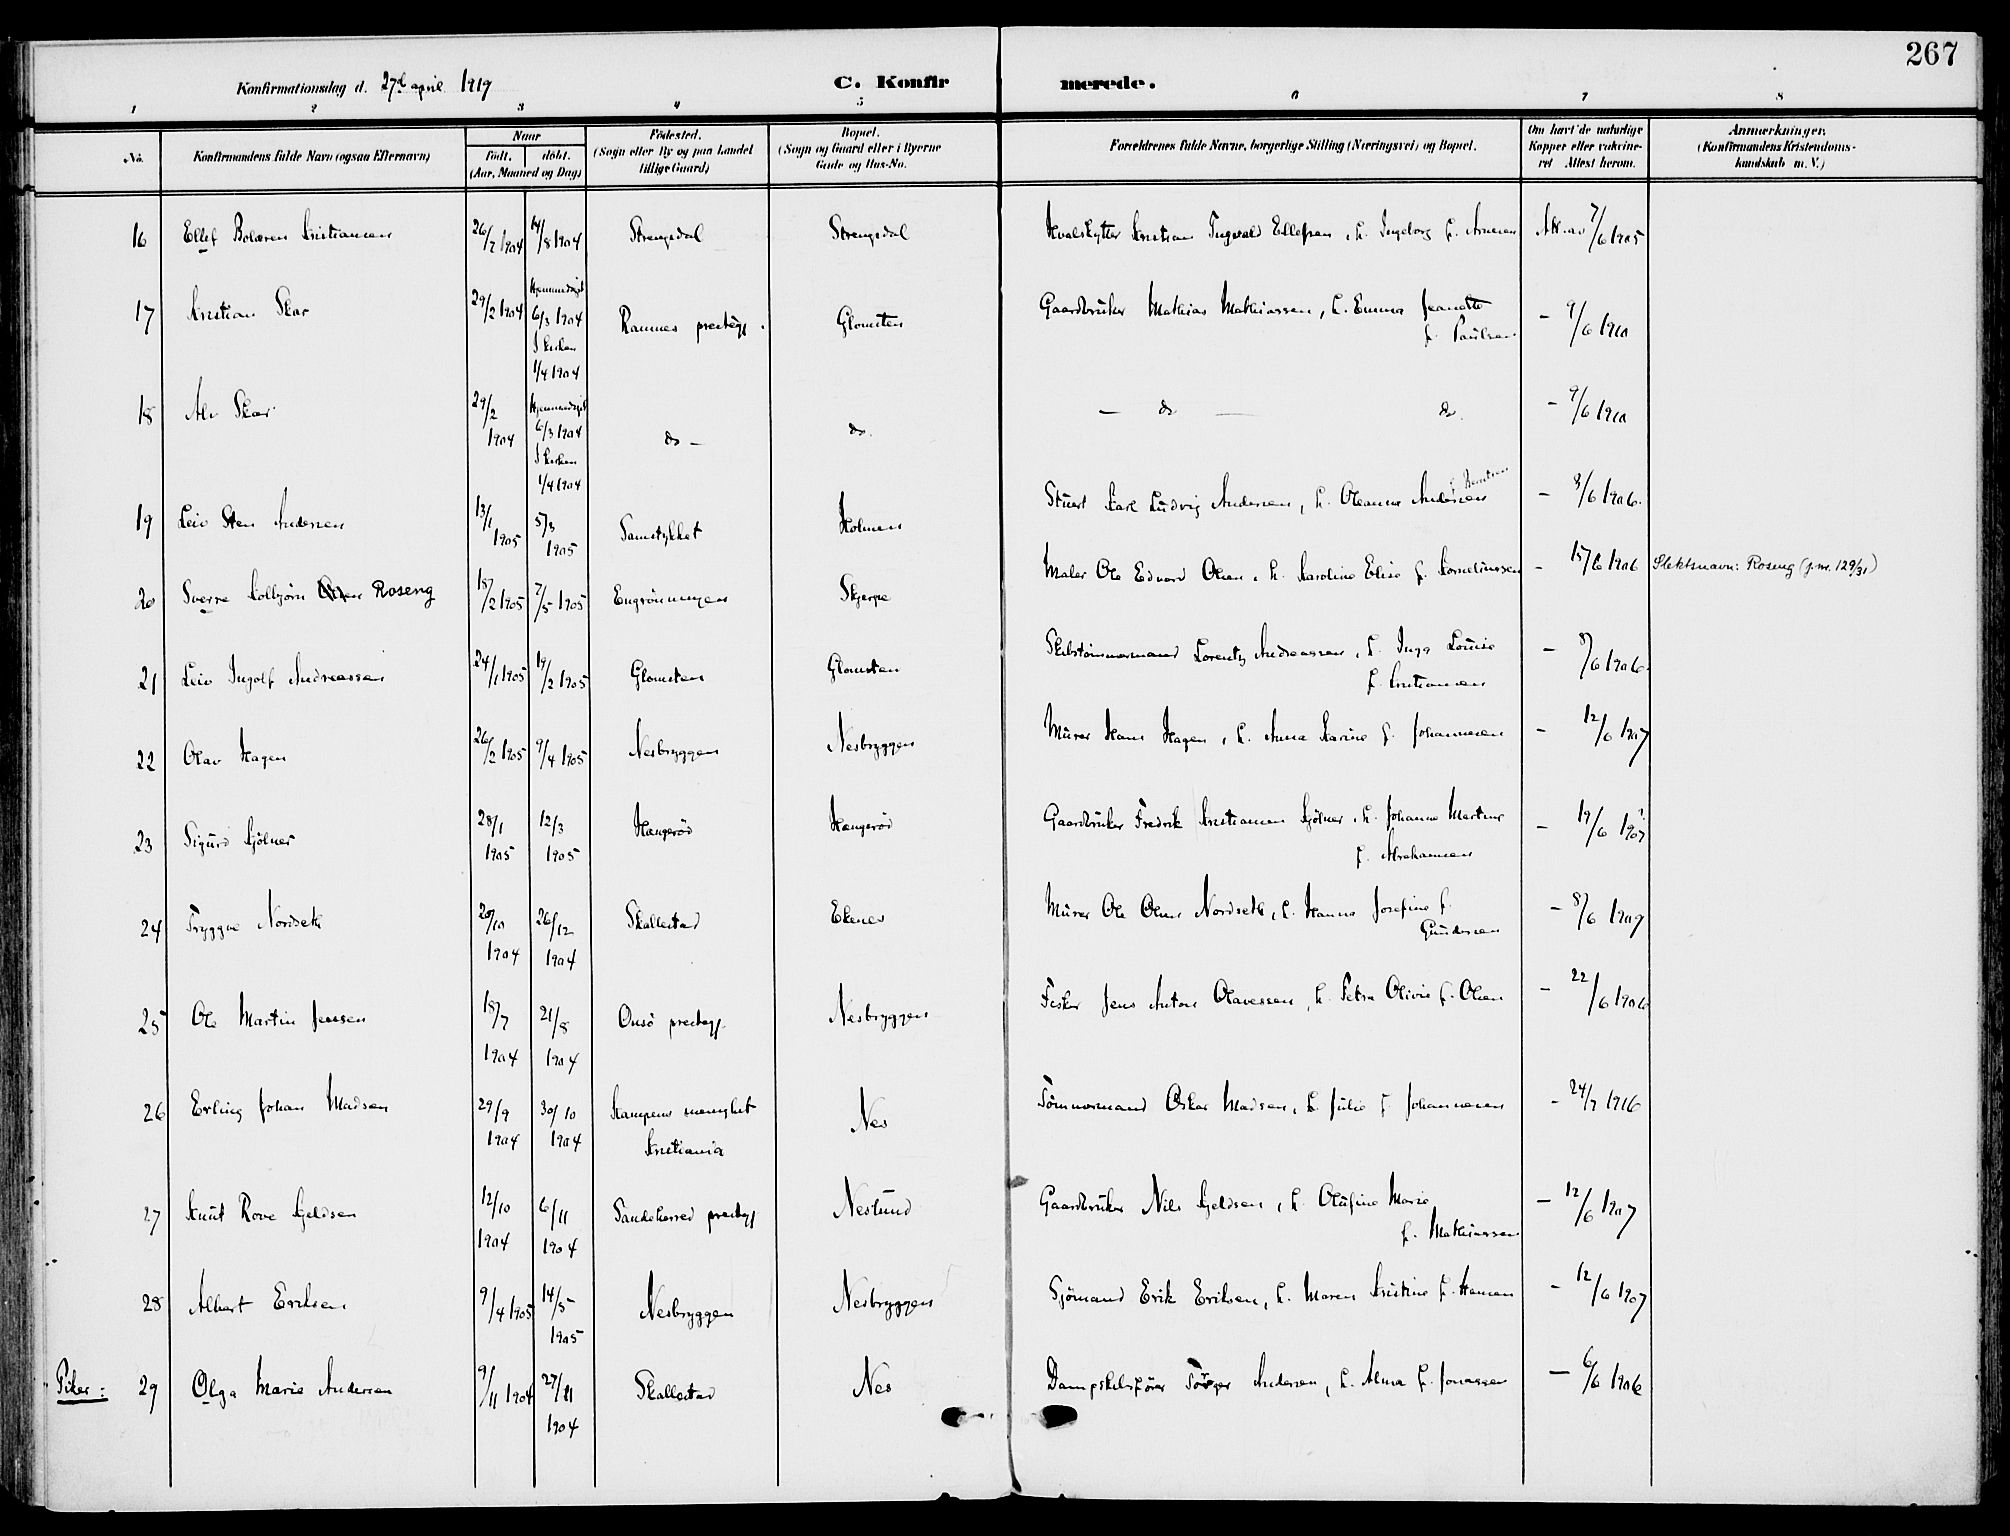 267
Konfirmationsdag d. 27de april 1919 C. Konfirmerede.
1 2 3 4 5 6 7 8
No. Konfirmandens fulde Navn (ogsaa Efternavn) Naar født. døbt. (Aar, Maaned og Dag) Fødested. (Sogn eller By og paa Landet tillige Gaard) Bopæl. (Sogn og Gaard eller i Byerne Gade og Hus-No. Forældrenes fulde Navne, borgerlige Stilling (Næringsvei) og Bopæl. Om havt de naturlige Kopper eller vakcineret Attest herom. Anmærkninger. (Konfirmandens Kristendomskundskab m. V.)
16 Ellef Bolæren Kristiansen 26/7 1904 14/8 1904 Strengsdal Strengsdal Hvalskytter Kristian Ingvald Ellefsen, h. Ingeborg f. Arnesen Att. av 7/6 1905
17 Kristian Skar 29/2 1904 Hjemmedøpt 6/3 1904 I kirken 1/4 1904 Ramnes prestegj. Glomsten Gaardbruker Mathias Mathiassen, h. Emma Jeanette f. Paulsen - 9/6 1910
18 Alv Skar 29/2 1904 Hjemmedøpt 6/3 1904 I kirken 1/4 1904 do - do. - do - do. - 9/6 1910
19 Leiv Sten Andersen 13/1 1905 5/3 1905 Samstykket Holmen Stuert Karl Ludvig Andersen, h. Oleanna Andersen f. Berntsen - 8/6 1906.
20 Sverre Kolbjørn Olsen Roseng 18/2 1905 7/5 1905 Engrønningen Skjerpe Maler Ole Edvard Olsen, h. Karoline Elise f. Korneliussen - 15/6 1906 Slektsnavn: Roseng (j.nr. 129/31)
21 Leiv Ingolf Andreassen 24/1 1905 19/2 1905 Glomsten Glomsten Skibstømmermand Lorentz Andreassen, h. Inga Louise f. Kristiansen - 8/6 1906.
22 Olav Hagen 26/2 1905 9/4 1905 Nesbryggen Nesbryggen Murer Hans Hagen, h. Anna Karine f. Johannesen - 12/6 1907
23 Sigurd Kjølner 28/1 1905 12/3 1905 Haugerød Haugerød Gaardbruker Fredrik Kristiansen Kjølner, h. Johanne Martine f. Abrahamsen - 19/6 1907
24 Tryggve Nordseth 20/10 1904 26/12 1904 Skallestad Ekenes Murer Ole Olsen Nordseth, h. Hanna Josefine f. Gundersen - 8/6 1909
25 Ole Martin Jensen 18/7 1904 21/8 1904 Onsø prestegj. Nesbryggen Fisker Jens Anton Olavessen, h. Petra Olivia f. Olsen - 22/6 1906
26 Erling Johan Madsen 29/9 1904 30/10 1904 Kampens menighet Kristiania Nes Tømmermand Oskar Madsen, h. Julie f. Johannesen - 24/7 1916
27 Knut Rove Kjeldsen 12/10 1904 6/11 1904 Sandeherred prestegj. Neslund Gaardbruker Nils Kjeldsen, h. Olufine Marie f. Mathiassen - 12/6 1907
28 Albert Eriksen 9/4 1905 14/5 1905 Nesbryggen Nesbryggen Sjømand Erik Eriksen, h. Maren Kristine f. Hansen - 12/6 1907
Piker: 29 Olga Marie Andersen 9/11 1904 27/11 1904 Skallestad Nes Dampskibsfører Tørger Andersen, h. Alma f. Jonassen - 6/6 1906